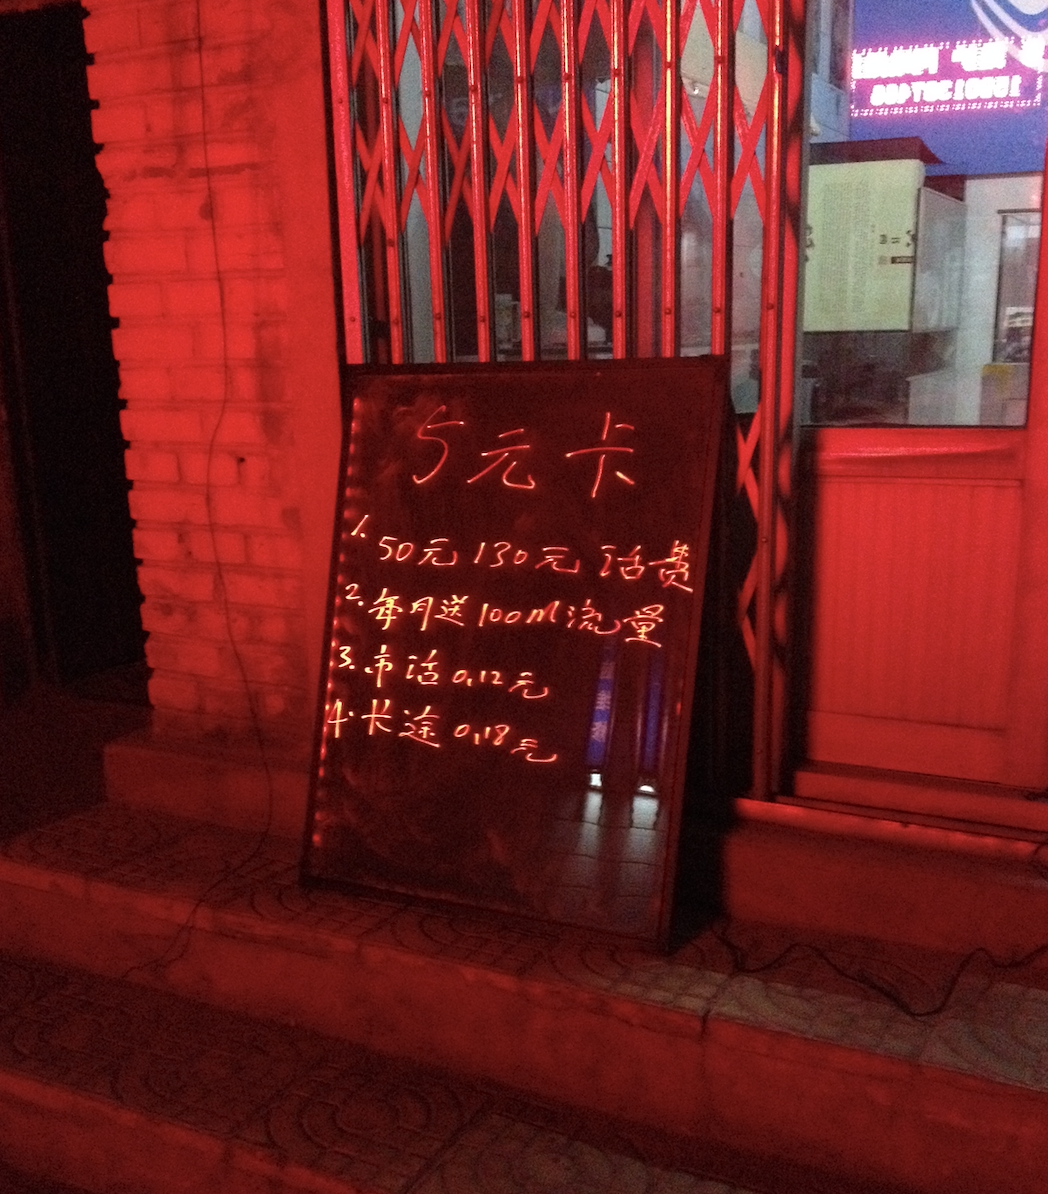 5元卡
1. 50元130元话费
2. 每月送100M流量
3. 市话0.12元
4. 长途0.18元